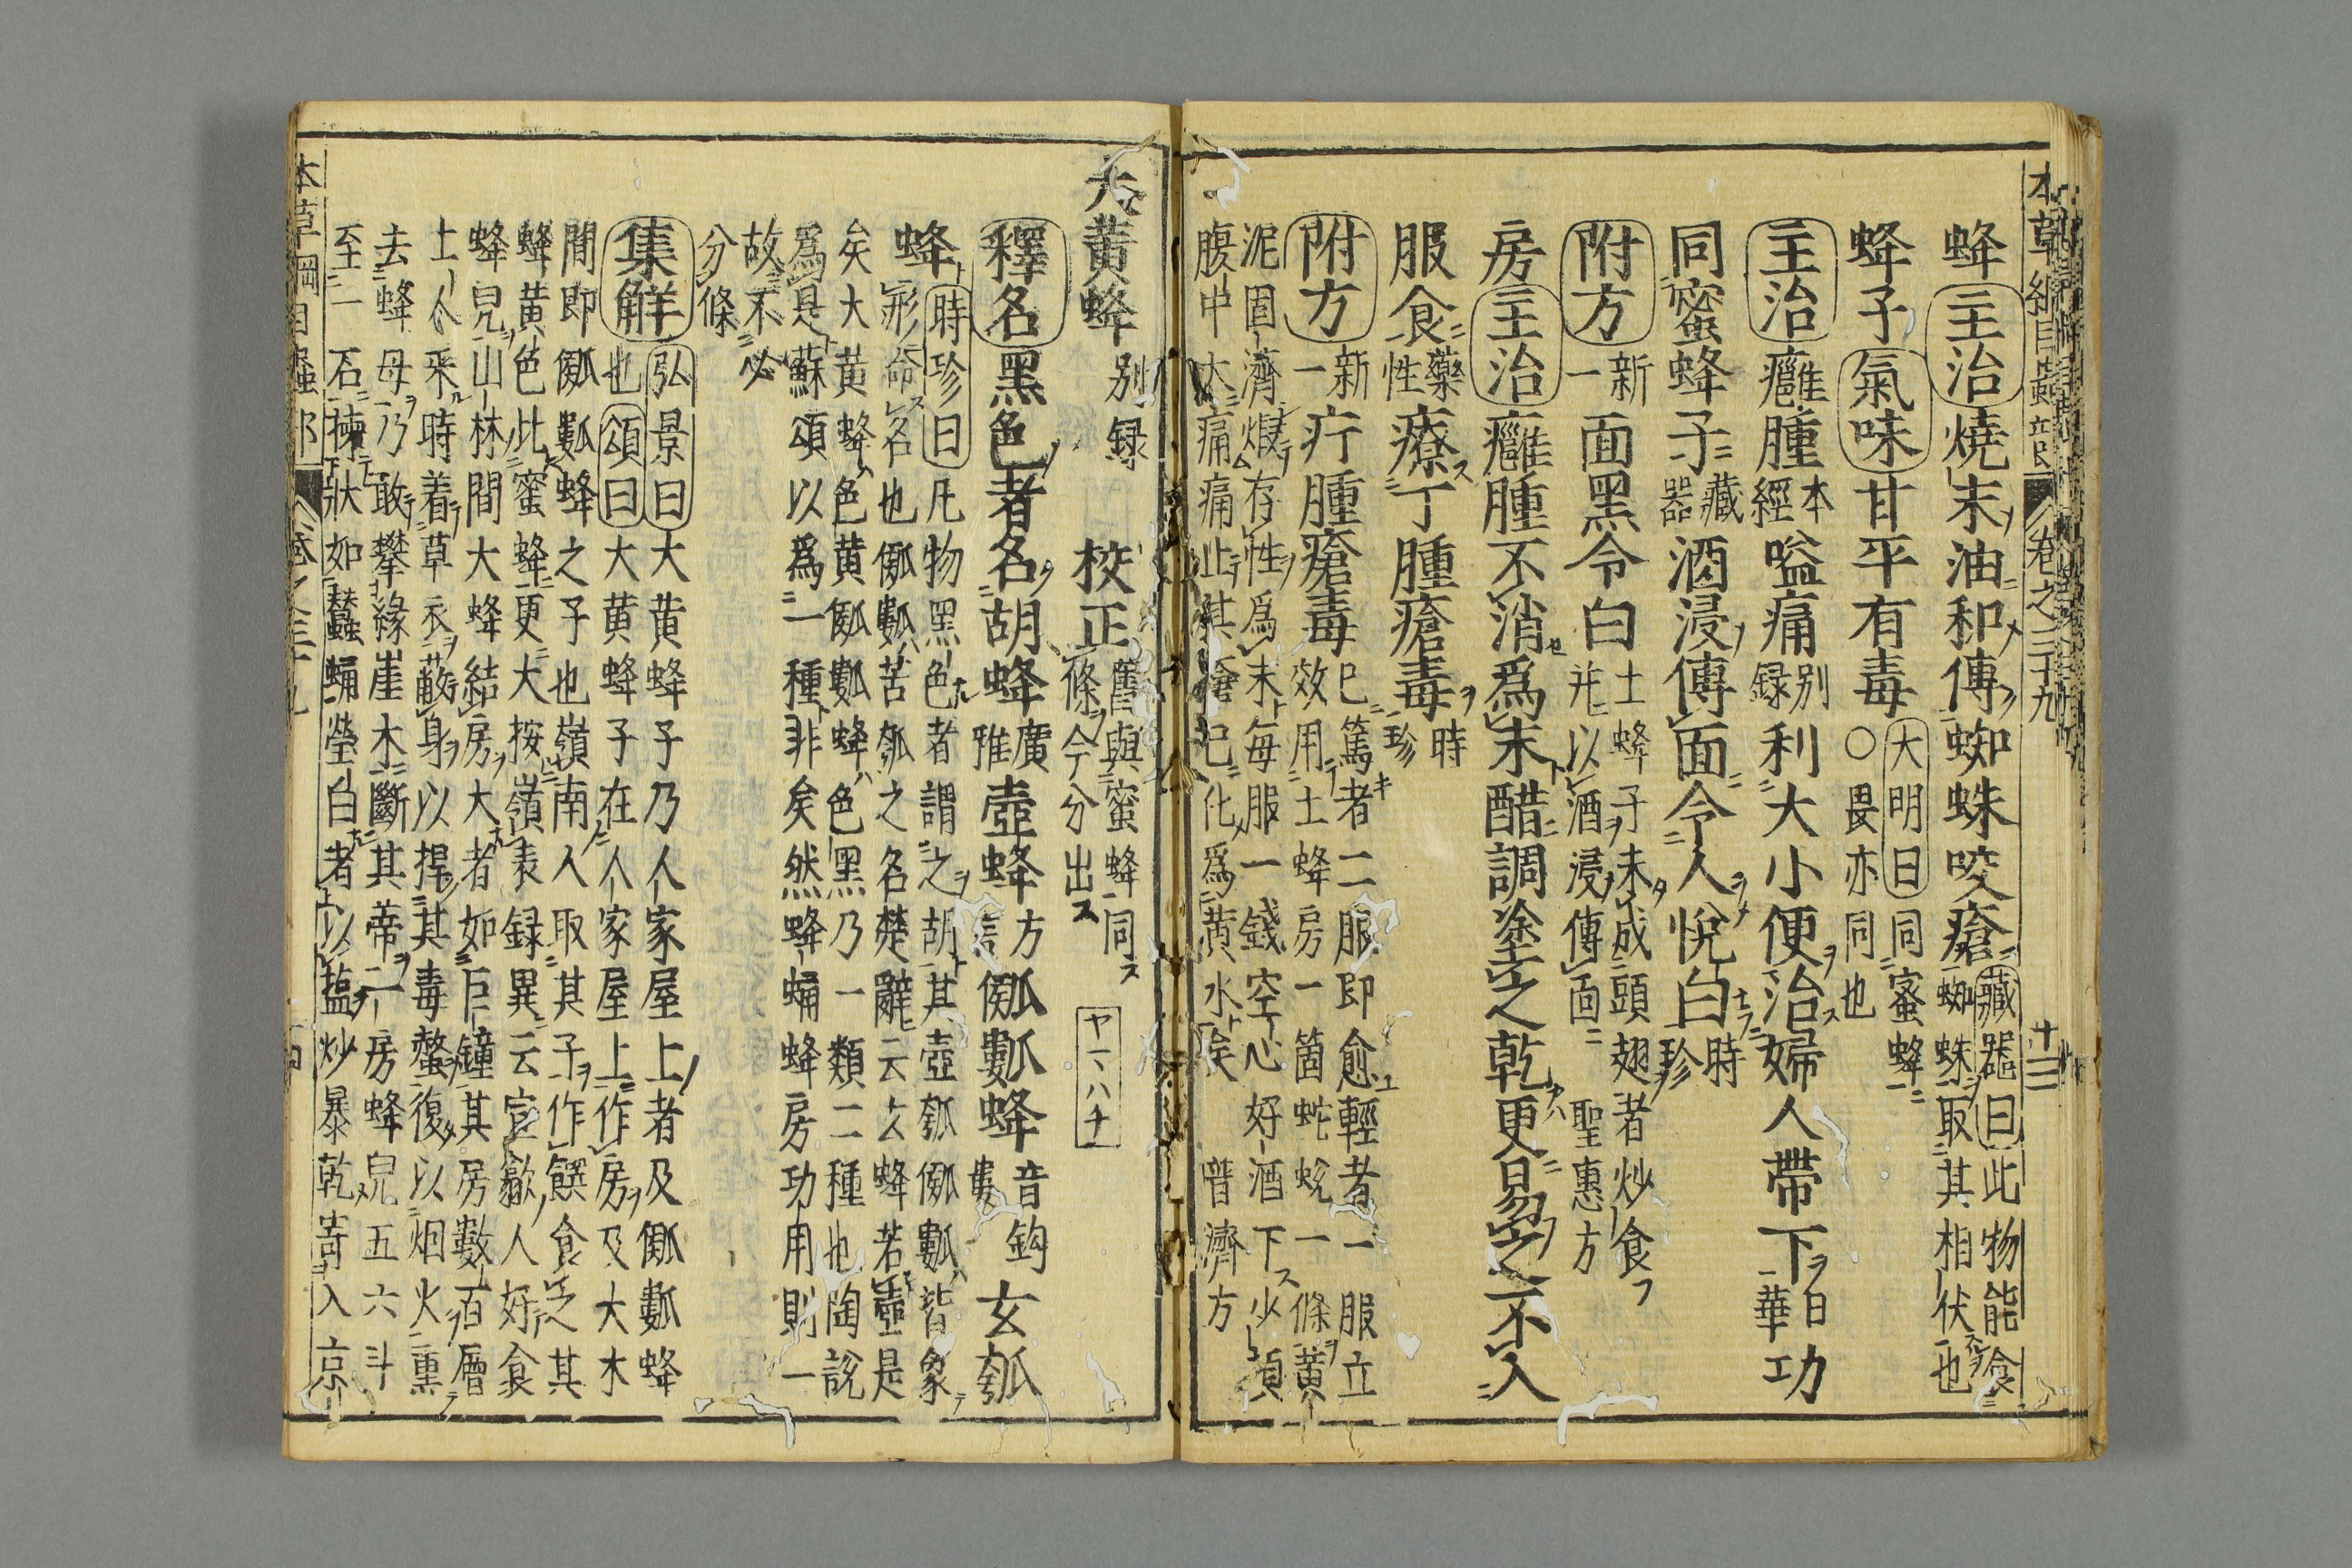 本草綱目蟲部 卷之三十九 十三
蜂主治燒末油和傅蜘蛛咬瘡藏器曰此物能食蜘蛛取其相伏也
蜂子氣味甘平有毒大明曰同蜜蜂○畏亦同也
主治癰腫本經嗌痛别録利大小便治婦人帶下日華功
同蜜蜂子藏器酒浸傅面令人悅白時珍
附方新一面黑令白土蜂子未成頭翅者炒食并以酒浸傅面聖惠方
房主治癰腫不消爲末醋調塗之乾更易之不入
服食藥性療丁腫瘡毒時珍
附方新一疔腫瘡毒已篤者二服即愈輕者一服立效用土蜂房一箇蛇蛻一條黄
泥固濟煅存性爲末每服一錢空心好酒下少頃
腹中大痛痛止其瘡已化爲黄水矣普濟方
大黄蜂别録 校正舊與蜜蜂同條今分出ス
ヤマハチ
釋名黑色者名胡蜂廣雅壺蜂方言㼭㼡蜂音鈎婁玄瓠
蜂時珍曰凡物黑色者謂之胡其壺瓠㼭㼡皆象
形命名也㼭㼡苦瓠之名楚辭云玄蜂若壺是
矣大黄蜂色黄㼭㼡蜂色黑乃一類二種也陶說
爲是蘇頌以爲一種非矣然蜂蛹蜂房功用則一
故不必
分條
集解弘景曰大黄蜂子乃人家屋上者及㼭㼡蜂
也頌曰大黄蜂子在人家屋上作房及大木
間即㼭㼡蜂之子也嶺南人取其子作饌食之其
蜂黄色比蜜蜂更大按嶺表録異云宣歙人好食
蜂兒山林間大蜂結房大者如巨鐘其房數百層
土人采時着草衣蔽身以捍其毒螫復以烟火熏
去蜂母乃敢攀緣崖木斷其蒂一房蜂兒五六斗
至一石揀狀如蠶蛹瑩白者以塩炒暴乾寄入京
本草綱目蟲部 卷之三十九